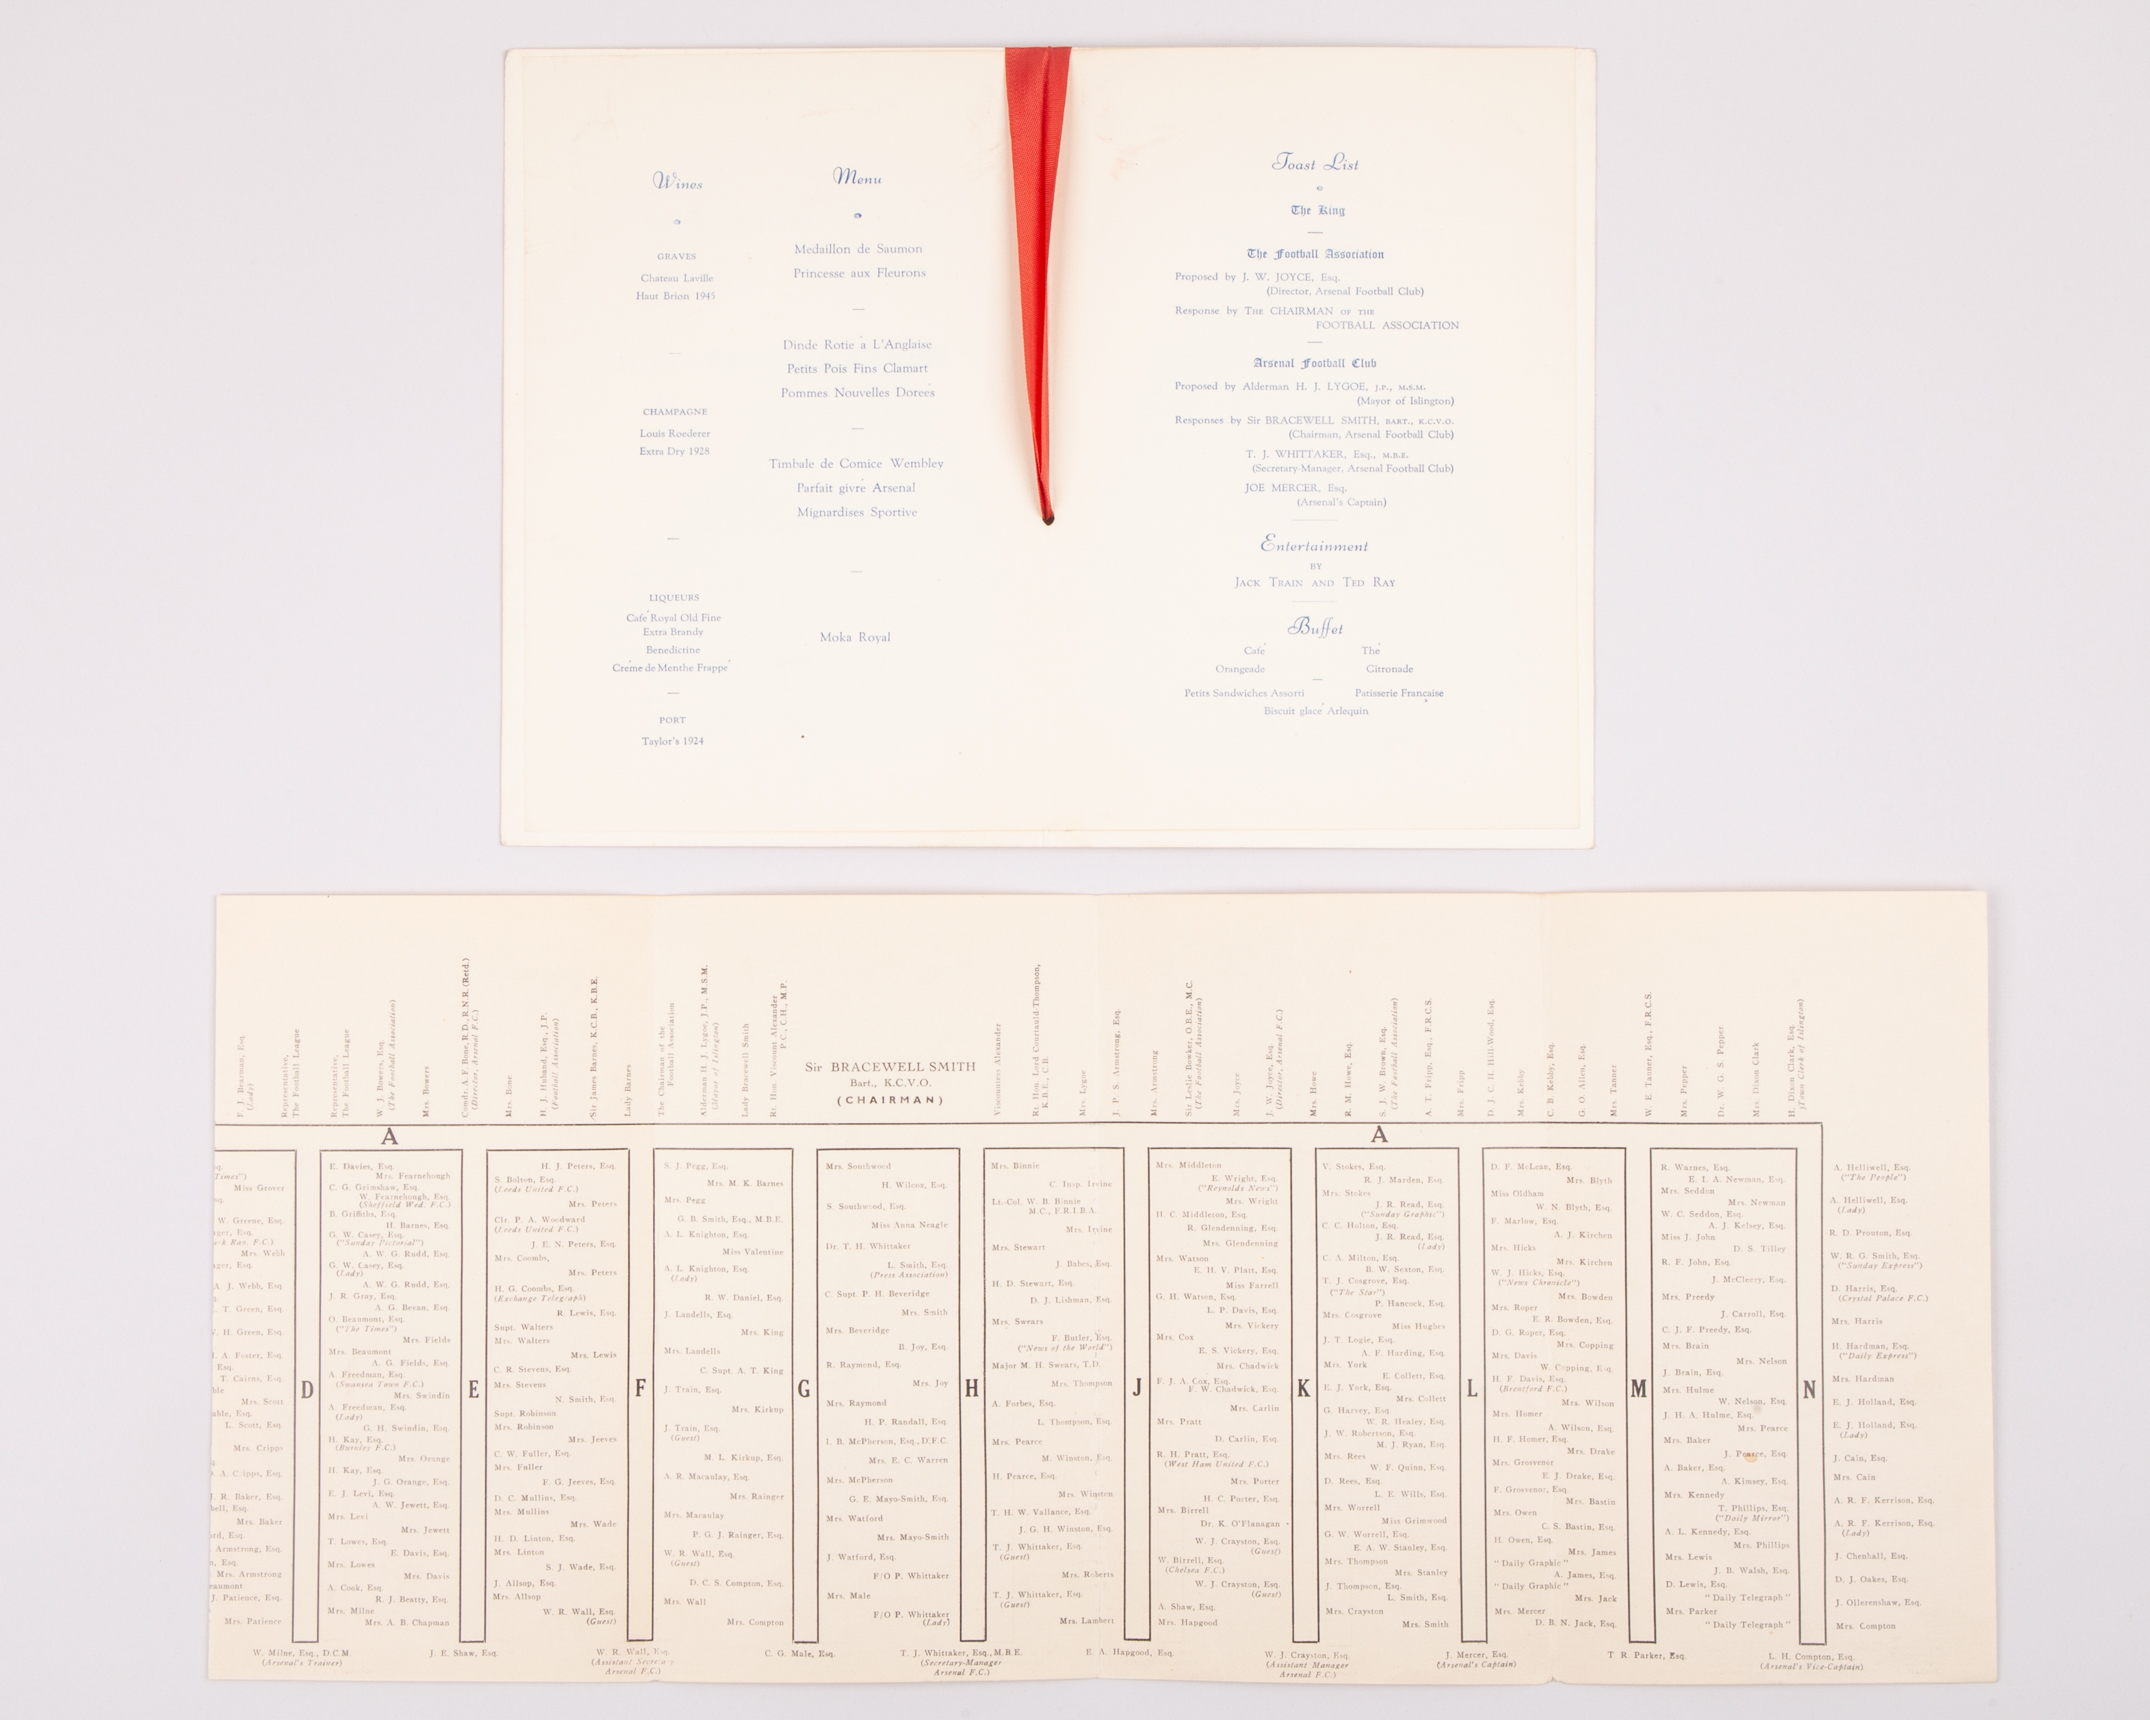 Wines
GRAVES
Chateau Laville
Haut Brion 1945
CHAMPAGNE
Louis Roederer
Extra Dry 1928
LIQUEURS
Café Royal Old Fine
Extra Brandy
Benedictine
Créme de Menthe Frappé
PORT
Taylor's 1924
Menu
Medaillon de Saumon
Princesse aux Fleurons
Dinde Rotie à L'Anglaise
Petits Pois Fins Clamart
Pommes Nouvelles Doreés
Timbale de Comice Wembley
Parfait givré Arsenal
Mignardises Sportive
Moka Royal
Toast List
The King
The Football Association
Proposed by J. W. JOYCE, Esq.
(Director, Arsenal Football Club)
Response by THE CHAIRMAN OF THE
FOOTBALL ASSOCIATION
Arsenal Football Club
Proposed by Alderman H. J. LYGOE, J.P., M.S.M.
(Mayor of Islington)
Responses by Sir BRACEWELL SMITH, BART., K.C.V.O.
(Chairman, Arsenal Football Club)
T. J. WHITTAKER, Esq., M.B.E.
(Secretary-Manager, Arsenal Football Club)
JOE MERCER, Esq.
(Arsenal's Captain)
Entertainment
BY
JACK TRAIN AND TED RAY
Buffet
Café Thé
Orangeade Citronade
Petits Sandwiches Assorti Patisserie Française
Biscuit glacé Arlequin
F. J. Bearman, Esq.
(Lady)
Representative,
The Football League
Representative,
The Football League
W. J. Bowers, Esq.
(The Football Association)
Mrs. Bowers
Comdr. A. F. Bone, R.D., R.N.R. (Retd.)
(Director, Arsenal F.C.)
Mrs. Bone
H. J. Huband, Esq., J.P.
(Football Association)
Sir James Barnes, K.C.B., K.B.E.
Lady Barnes
The Chairman of the
Football Association
Alderman H. J. Lygoe, J.P., M.S.M.
(Mayor of Islington)
Lady Bracewell Smith
Rt. Hon. Viscount Alexander
P.C., C.H., M.P.
Sir BRACEWELL SMITH
Bart., K.C.V.O.
(CHAIRMAN)
Viscountess Alexander
Rt. Hon. Lord Courtauld-Thompson,
K.B.E., C.B.
Mrs. Lygoe
J. P. S. Armstrong, Esq.
Mrs. Armstrong
Sir Leslie Bowker, O.B.E., M.C.
(The Football Association)
Mrs. Joyce
J. W. Joyce, Esq.
(Director, Arsenal F.C.)
Mrs. Howe
R. M. Howe, Esq.
S. J. W. Brown, Esq.
(The Football Association)
A. T. Fripp, Esq., F.R.C.S.
Mrs. Fripp
D. J. C. H. Hill-Wood, Esq.
Mrs. Kebby
C. B. Kebby, Esq.
G. O. Allen, Esq.
Mrs. Tanner
W. E. Tanner, Esq., F.R.C.S.
Mrs. Pepper
Dr. W. G. S. Pepper
Mrs. Dixon Clark
H. Dixon Clark, Esq.
(Town Clerk of Islington)
A
A
Times")
Miss Grover
W. Greene, Esq.
Mrs. Webb
A. J. Webb, Esq.
T. Green, Esq.
H. Green, Esq.
A. Foster, Esq.
Esq.
T. Cairns, Esq.
Mrs. Scott
L. Scott, Esq.
Mrs. Cripps
A. Cripps, Esq.
R. Baker, Esq.
Mrs. Baker
Armstrong, Esq.
Mrs. Armstrong
J. Patience, Esq.
Mrs. Patience
D
E. Davies, Esq.
Mrs. Fearnehough
C. G. Grimshaw, Esq.
W. Fearnehough, Esq.
(Sheffield Wed. F.C.)
B. Griffiths, Esq.
H. Barnes, Esq.
G. W. Casey, Esq.
("Sunday Pictorial")
A. W. G. Rudd, Esq.
G. W. Casey, Esq.
(Lady)
A. W. G. Rudd, Esq.
J. R. Gray, Esq.
A. G. Bevan, Esq.
O. Beaumont, Esq.
("The Times")
Mrs. Fields
Mrs. Beaumont
A. G. Fields, Esq.
A. Freedman, Esq.
(Swansea Town F.C.)
Mrs. Swindin
A. Freedman, Esq.
(Lady)
G. H. Swindin, Esq.
H. Kay, Esq.
(Burnley F.C.)
Mrs. Orange
H. Kay, Esq.
J. G. Orange, Esq.
E. J. Levi, Esq.
A. W. Jewett, Esq.
Mrs. Levi
Mrs. Jewett
T. Lowes, Esq.
E. Davis, Esq.
Mrs. Lowes
Mrs. Davis
A. Cook, Esq.
R. J. Beatty, Esq.
Mrs. Milne
Mrs. A. B. Chapman
E
H. J. Peters, Esq.
S. Bolton, Esq.
(Leeds United F.C.)
Mrs. Peters
Clr. P. A. Woodward
(Leeds United F.C.)
J. E. N. Peters, Esq.
Mrs. Coombs,
Mrs. Peters
H. G. Coombs, Esq.
(Exchange Telegraph)
R. Lewis, Esq.
Supt. Walters
Mrs. Walters
Mrs. Lewis
C. R. Stevens, Esq.
Mrs. Stevens
N. Smith, Esq.
Supt. Robinson
Mrs. Robinson
Mrs. Jeeves
C. W. Fuller, Esq.
Mrs. Fuller
F. G. Jeeves, Esq.
D. C. Mullins, Esq.
Mrs. Mullins
Mrs. Wade
H. D. Linton, Esq.
Mrs. Linton
S. J. Wade, Esq.
J. Allsop, Esq.
Mrs. Allsop
W. R. Wall, Esq.
(Guest)
F
S. J. Pegg, Esq.
Mrs. M. K. Barnes
Mrs. Pegg
G. B. Smith, Esq., M.B.E.
A. L. Knighton, Esq.
Miss Valentine
A. L. Knighton, Esq.
(Lady)
R. W. Daniel, Esq.
J. Landells, Esq.
Mrs. King
Mrs. Landells
C. Supt. A. T. King
J. Train, Esq.
Mrs. Kirkup
J. Train, Esq.
(Guest)
M. L. Kirkup, Esq.
A. R. Macaulay, Esq.
Mrs. Rainger
Mrs. Macaulay
P. G. J. Rainger, Esq.
W. R. Wall, Esq.
(Guest)
D. C. S. Compton, Esq.
Mrs. Wall
Mrs. Compton
G
Mrs. Southwood
H. Wilcox, Esq.
S. Southwood, Esq.
Miss Anna Neagle
Dr. T. H. Whittaker
L. Smith, Esq.
(Press Association)
C. Supt. P. H. Beveridge
Mrs. Smith
Mrs. Beveridge
B. Joy, Esq.
R. Raymond, Esq.
Mrs. Joy
Mrs. Raymond
H. P. Randall, Esq.
I. B. McPherson, Esq., D.F.C.
Mrs. E. C. Warren
Mrs. McPherson
G. E. Mayo-Smith, Esq.
Mrs. Watford
Mrs. Mayo-Smith
J. Watford, Esq.
F/O P. Whittaker
Mrs. Male
F/O P. Whittaker
(Lady)
H
Mrs. Binnie
C. Insp. Irvine
Lt.-Col. W. B. Binnie
M.C., F.R.I.B.A.
Mrs. Irvine
Mrs. Stewart
J. Babes, Esq.
H. D. Stewart, Esq.
D. J. Lishman, Esq.
Mrs. Swears
F. Butler, Esq.
("News of the World")
Major M. H. Swears, T.D.
Mrs. Thompson
A. Forbes, Esq.
L. Thompson, Esq.
Mrs. Pearce
M. Winston, Esq.
H. Pearce, Esq.
Mrs. Winston
T. H. W. Vallance, Esq.
J. G. H. Winston, Esq.
T. J. Whittaker, Esq.
(Guest)
Mrs. Roberts
T. J. Whittaker, Esq.
(Guest)
Mrs. Lambert
J
Mrs. Middleton
E. Wright, Esq.
("Reynolds News")
Mrs. Wright
H. C. Middleton, Esq.
R. Glendenning, Esq.
Mrs. Glendenning
Mrs. Watson
E. H. V. Platt, Esq.
Miss Farrell
G. H. Watson, Esq.
L. P. Davis, Esq.
Mrs. Vickery
Mrs. Cox
E. S. Vickery, Esq.
Mrs. Chadwick
F. J. A. Cox, Esq.
F. W. Chadwick, Esq.
Mrs. Carlin
Mrs. Pratt
D. Carlin, Esq.
R. H. Pratt, Esq.
(West Ham United F.C.)
Mrs. Porter
H. C. Porter, Esq.
Mrs. Birrell
Dr. K. O'Flanagan
W. J. Crayston, Esq.
(Guest)
W. Birrell, Esq.
(Chelsea F.C.)
W. J. Crayston, Esq.
(Guest)
A. Shaw, Esq.
Mrs. Hapgood
K
V. Stokes, Esq.
R. J. Marden, Esq.
Mrs. Stokes
J. R. Read, Esq.
("Sunday Graphic")
C. C. Holton, Esq.
J. R. Read, Esq.
(Lady)
C. A. Milton, Esq.
B. W. Sexton, Esq.
T. J. Cosgrove, Esq.
("The Star")
P. Hancock, Esq.
Mrs. Cosgrove
Miss Hughes
J. T. Logie, Esq.
A. F. Harding, Esq.
Mrs. York
E. Collett, Esq.
E. J. York, Esq.
Mrs. Collett
G. Harvey, Esq.
W. R. Healey, Esq.
J. W. Robertson, Esq.
M. J. Ryan, Esq.
Mrs. Rees
W. F. Quinn, Esq.
D. Rees, Esq.
L. E. Wills, Esq.
Mrs. Worrell
Miss Grimwood
G. W. Worrell, Esq.
E. A. W. Stanley, Esq.
Mrs. Thompson
Mrs. Stanley
J. Thompson, Esq.
L. Smith, Esq.
Mrs. Crayston
Mrs. Smith
L
D. F. McLean, Esq.
Mrs. Blyth
Miss Oldham
W. N. Blyth, Esq.
F. Marlow, Esq.
A. J. Kirchen
Mrs. Hicks
Mrs. Kirchen
W. J. Hicks, Esq.
("News Chronicle")
Mrs. Bowden
Mrs. Roper
E. R. Bowden, Esq.
D. G. Roper, Esq.
Mrs. Copping
Mrs. Davis
W. Copping, Esq.
H. F. Davis, Esq.
(Brentford F.C.)
Mrs. Wilson
Mrs. Homer
A. Wilson, Esq.
H. F. Homer, Esq.
Mrs. Drake
Mrs. Grosvenor
E. J. Drake, Esq.
F. Grosvenor, Esq.
Mrs. Bastin
Mrs. Owen
C. S. Bastin, Esq.
H. Owen, Esq.
Mrs. James
"Daily Graphic"
A. James, Esq.
"Daily Graphic"
Mrs. Jack
Mrs. Mercer
D. B. N. Jack, Esq.
M
R. Warnes, Esq.
E. I. A. Newman, Esq.
Mrs. Seddon
Mrs. Newman
W. C. Seddon, Esq.
A. J. Kelsey, Esq.
Miss J. John
D. S. Tilley
R. F. John, Esq.
J. McCleery, Esq.
Mrs. Preedy
J. Carroll, Esq.
C. J. F. Preedy, Esq.
Mrs. Brain
Mrs. Nelson
J. Brain, Esq.
Mrs. Hulme
W. Nelson, Esq.
J. H. A. Hulme, Esq.
Mrs. Pearce
Mrs. Baker
J. Pearce, Esq.
A. Baker, Esq.
A. Kimsey, Esq.
Mrs. Kennedy
T. Phillips, Esq.
("Daily Mirror")
A. L. Kennedy, Esq.
Mrs. Phillips
Mrs. Lewis
J. B. Walsh, Esq.
D. Lewis, Esq.
"Daily Telegraph"
Mrs. Parker
"Daily Telegraph"
N
A. Helliwell, Esq.
("The People")
A. Helliwell, Esq.
(Lady)
R. D. Prouton, Esq.
W. R. G. Smith, Esq.
("Sunday Express")
D. Harris, Esq.
(Crystal Palace F.C.)
Mrs. Harris
H. Hardman, Esq.
("Daily Express")
Mrs. Hardman
E. J. Holland, Esq.
E. J. Holland, Esq.
(Lady)
J. Cain, Esq.
Mrs. Cain
A. R. F. Kerrison, Esq.
A. R. F. Kerrison, Esq.
(Lady)
J. Chenhall, Esq.
D. J. Oakes, Esq.
J. Ollerenshaw, Esq.
Mrs. Compton
W. Milne, Esq., D.C.M.
(Arsenal's Trainer)
J. E. Shaw, Esq.
W. R. Wall, Esq.
(Assistant Secretary
Arsenal F.C.)
C. G. Male, Esq.
T. J. Whittaker, Esq., M.B.E.
(Secretary-Manager
Arsenal F.C.)
E. A. Hapgood, Esq.
W. J. Crayston, Esq.
(Assistant Manager
Arsenal F.C.)
J. Mercer, Esq.
(Arsenal's Captain)
T. R. Parker, Esq.
L. H. Compton, Esq.
(Arsenal's Vice-Captain)